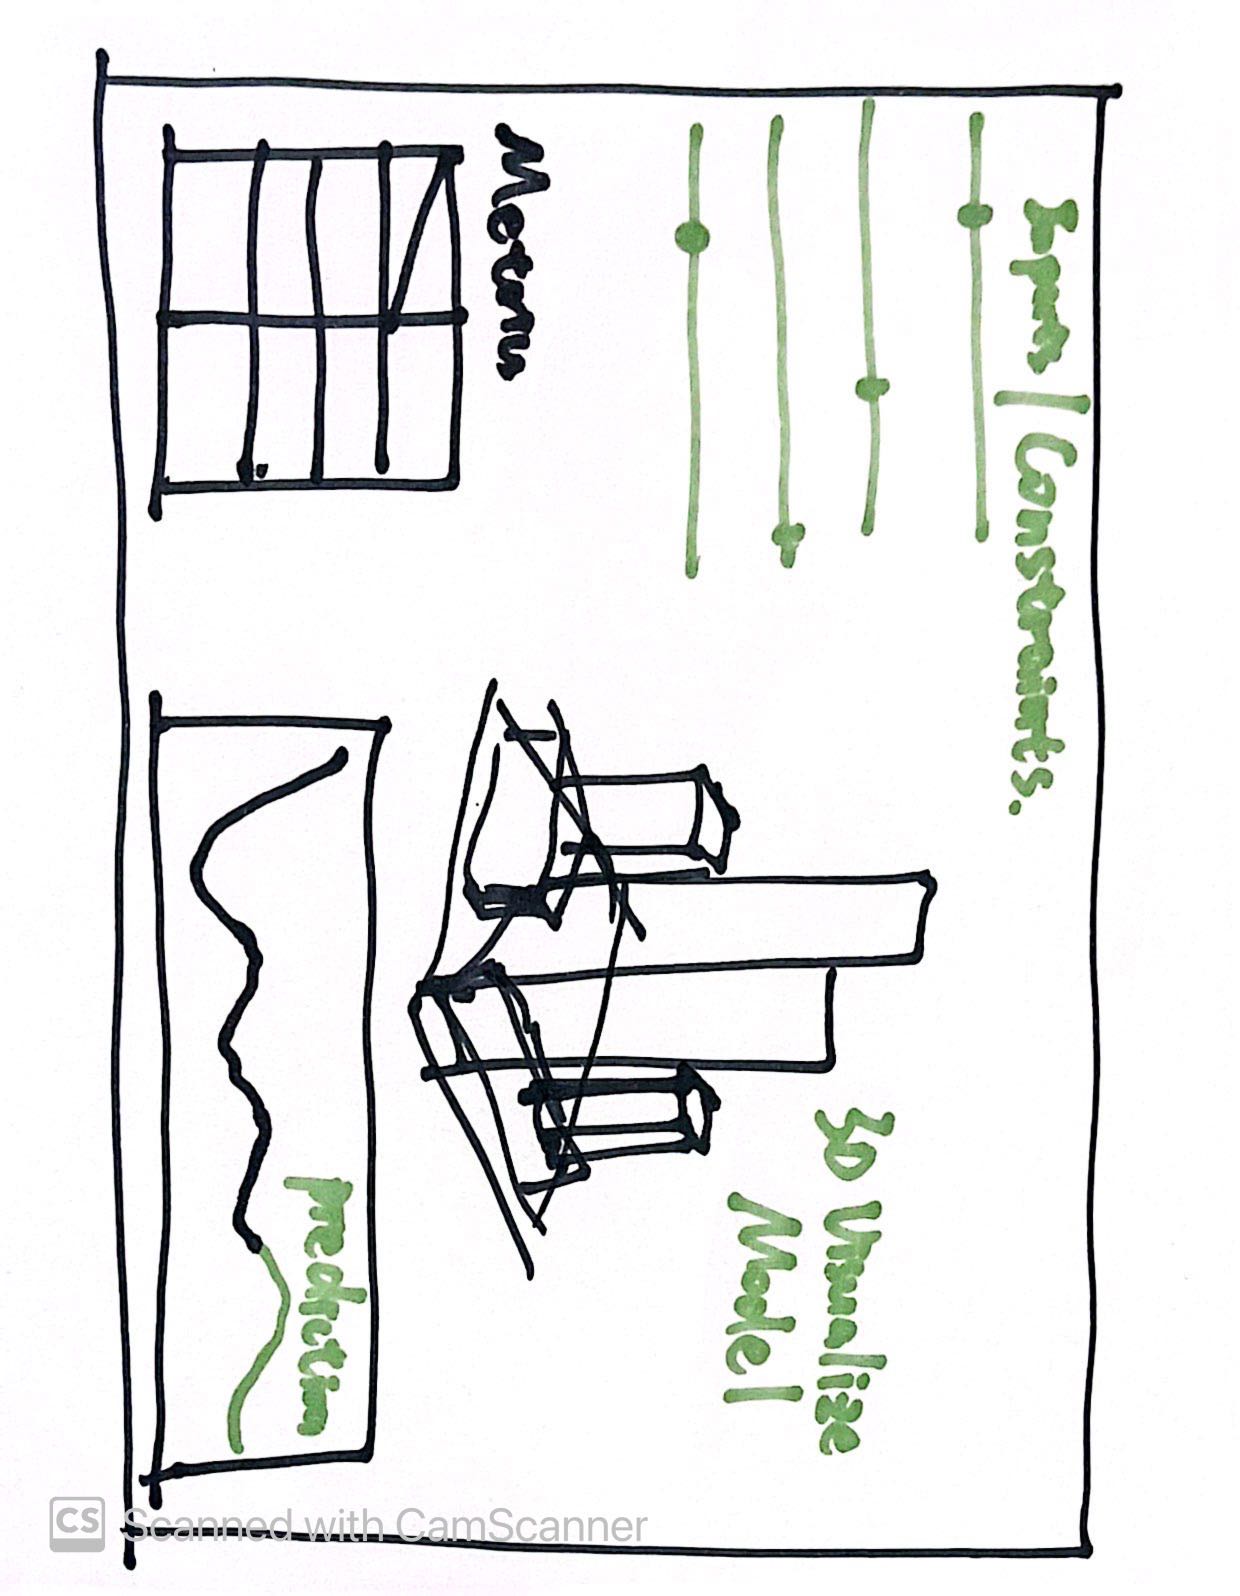 Inputs / Constraints.
3D Visualize
Model
Metrics
prediction
Scanned with CamScanner
CS